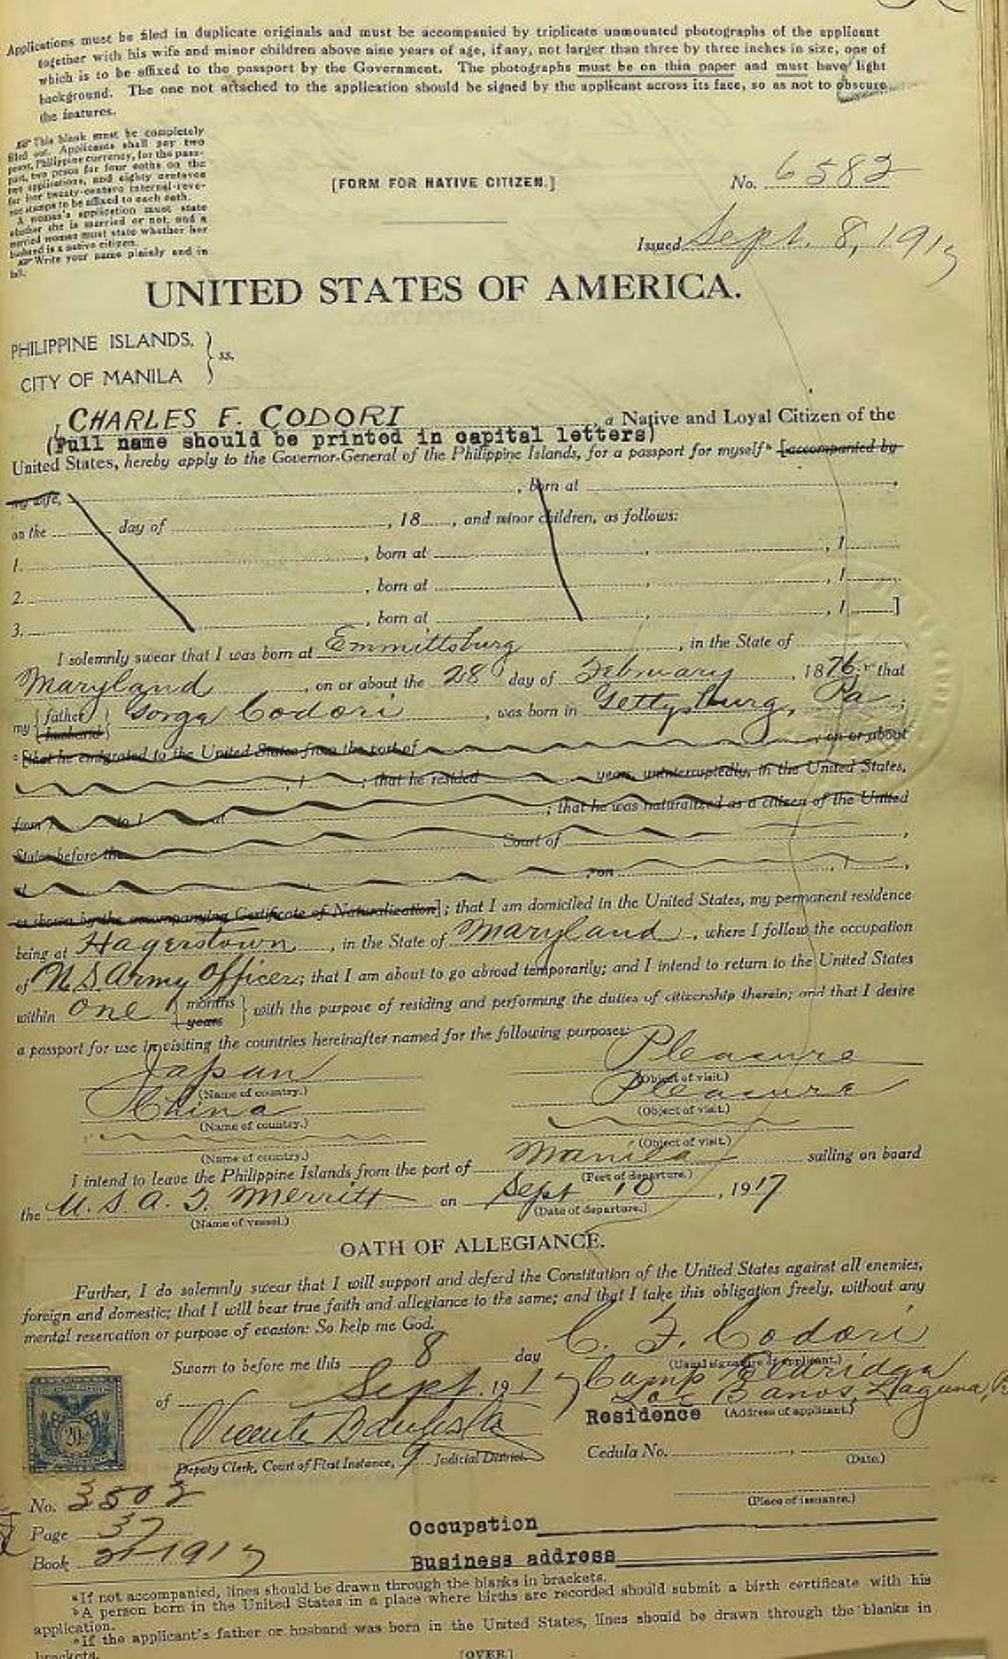 Applications must be filed in duplicate originals and must be accompanied by triplicate unmounted photographs of the applicant
together with his wife and minor children above nine years of age, if any, not larger than three by three inches in size, one of
which is to be affixed to the passport by the Government. The photographs must be on thin paper and must have light
background. The one not attached to the application should be signed by the applicant across its face, so as not to obscure
the features.
This blank must be completely
filled out. Applicants shall pay two
pesos, Philippine currency, for the pass-
port, two pesos for four oaths on the
two applications, and eighty centavos
for four twenty-centavo internal-reve-
nue stamps to be affixed to each oath.
A woman's application must state
whether she is married or not, and a
married woman must state whether her
husband is a native citizen.
Write your name plainly and in
full.
[FORM FOR NATIVE CITIZEN.]
No. 6582
Issued Sept. 8, 1917
UNITED STATES OF AMERICA.
PHILIPPINE ISLANDS,
CITY OF MANILA } ss.
I, CHARLES F. CODORI a Native and Loyal Citizen of the
(Full name should be printed in capital letters)
United States, hereby apply to the Governor-General of the Philippine Islands, for a passport for myself a [accompanied by
my wife, , born at ,
on the day of , 18 , and minor children, as follows:
1. , born at , , 1
2. , born at , , 1
3. , born at , , 1 ]
I solemnly swear that I was born at Emmittsburg , in the State of
Maryland , on or about the 28 day of February , 1876, that
my { father husband } Gorge Codori , was born in Gettysburg, Pa ;
c [that he emigrated to the United States from the port of on or about
, 1 ; that he resided years, uninterruptedly, in the United States,
from 1 to 1 at ; that he was naturalized as a citizen of the United
States before the Court of ,
at , on , 1 ,
as shown by the accompanying Certificate of Naturalization]; that I am domiciled in the United States, my permanent residence
being at Hagerstown , in the State of Maryland , where I follow the occupation
of U S Army Officer; that I am about to go abroad temporarily; and I intend to return to the United States
within one { months years } with the purpose of residing and performing the duties of citizenship therein; and that I desire
a passport for use in visiting the countries hereinafter named for the following purposes:
Japan Pleasure
(Name of country.) (Object of visit.)
China Pleasure
(Name of country.) (Object of visit.)
(Name of country.) (Object of visit.)
I intend to leave the Philippine Islands from the port of Manila sailing on board
(Port of departure.)
the U. S. A. T. Merritt on Sept 10 , 1917
(Name of vessel.) (Date of departure.)
OATH OF ALLEGIANCE.
Further, I do solemnly swear that I will support and defend the Constitution of the United States against all enemies,
foreign and domestic; that I will bear true faith and allegiance to the same; and that I take this obligation freely, without any
mental reservation or purpose of evasion: So help me God.
C. F. Codori
Sworn to before me this 8 day (Usual signature of applicant.)
of Sept. 1917 Camp Eldridge
Los Banos, Laguna, P.
Residence (Address of applicant.)
Vicente Bautista
Deputy Clerk, Court of First Instance, 9 Judicial District.
Cedula No. ,
(Date.)
(Place of issuance.)
No. 3502
Page 37
Book 1917
Occupation
Business address
a If not accompanied, lines should be drawn through the blanks in brackets.
b A person born in the United States in a place where births are recorded should submit a birth certificate with his
application.
c If the applicant's father or husband was born in the United States, lines should be drawn through the blanks in
brackets.
[OVER]